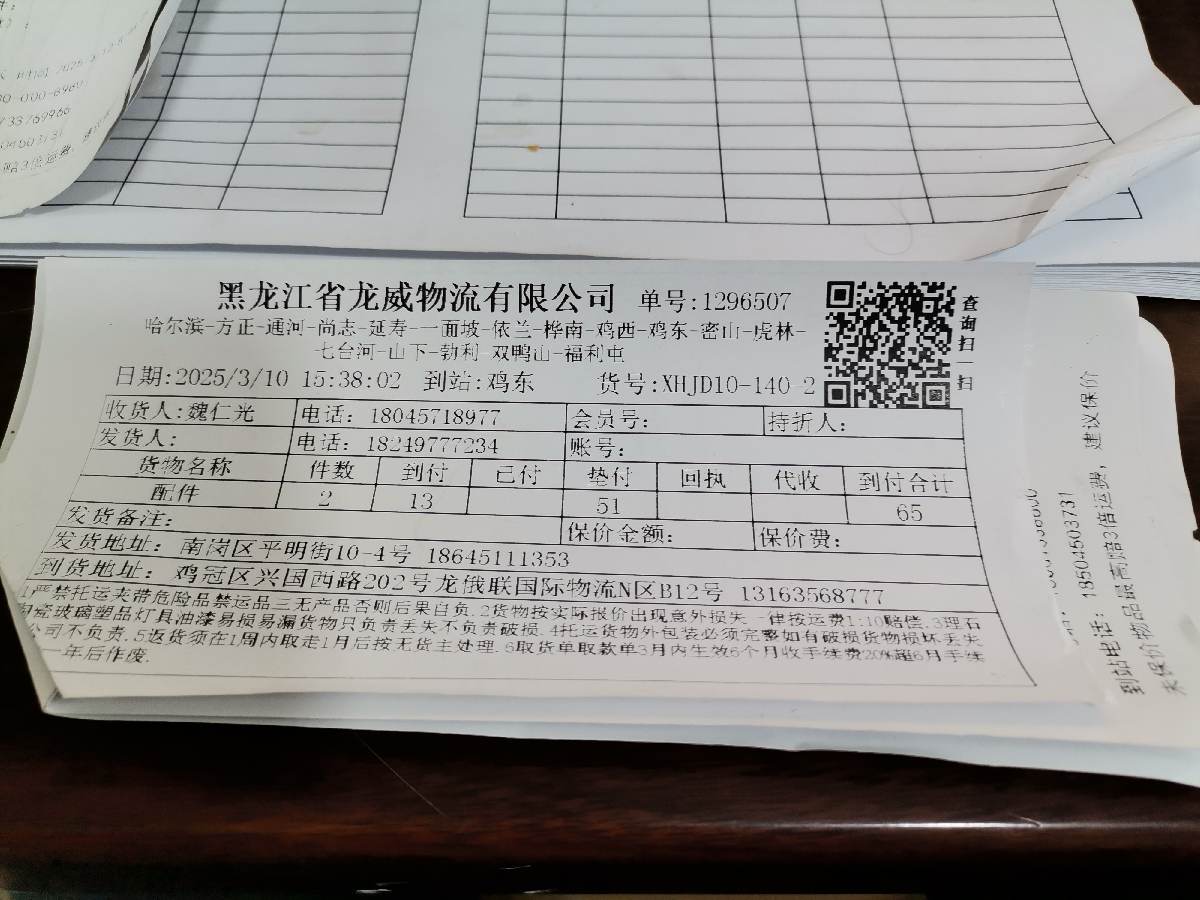 黑龙江省龙威物流有限公司 单号:1296507
哈尔滨-方正-通河-尚志-延寿-一面坡-依兰-桦南-鸡西-鸡东-密山-虎林-
七台河-山下-勃利-双鸭山-福利屯
查询扫一扫
日期:2025/3/10 15:38:02 到站:鸡东 货号:XHJD10-140-2
收货人:魏仁光 电话: 18045718977 会员号: 持折人:
发货人: 电话: 18249777234 账号:
货物名称 件数 到付 已付 垫付 回执 代收 到付合计
配件 2 13 51 65
发货备注: 保价金额: 保价费:
发货地址: 南岗区平明街10-4号 18645111353
到货地址: 鸡冠区兴国西路202号龙俄联国际物流N区B12号 13163568777
1严禁托运夹带危险品禁运品三无产品否则后果自负.2货物按实际报价出现意外损失一律按运费1:10赔偿.3理石
陶瓷玻璃塑品灯具油漆易损易漏货物只负责丢失不负责破损.4托运货物外包装必须完整如有破损货物损坏丢失
公司不负责.5返货须在1周内取走1月后按无货主处理.6取货单取款单3月内生效6个月收手续费20%超6月手续
一年后作废.
到站电话: 18504503731
未保价物品最高赔3倍运费, 建议保价
733769966
赔3倍运费,